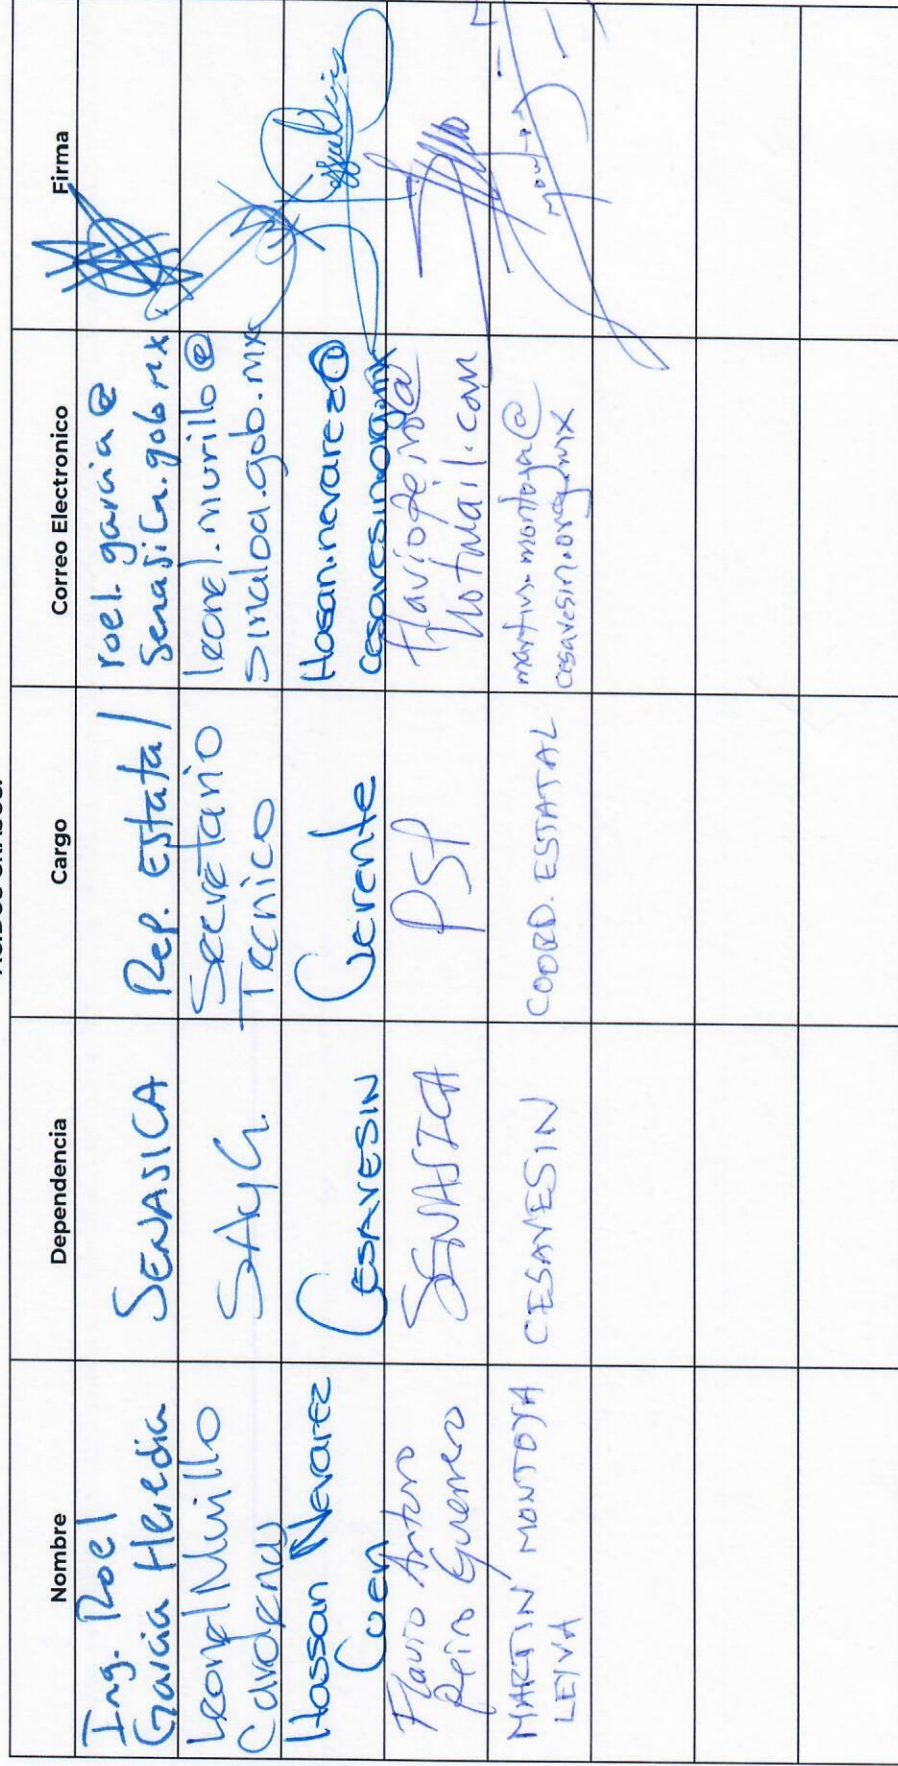 Nombre
Dependencia
Cargo
Correo Electronico
Firma
Ing. Roel
Garcia Heredia
SENASICA
Rep. Estatal
roel.garcia@
senasica.gob.mx
Leonel Murillo
Cardenas
SAyG.
Secretario
Tecnico
leonel.murillo@
sinaloa.gob.mx
Hassan Nevarez
Cuen
CESAVESIN
Gerente
Hasan.nevarez@
cesavesin.org.mx
Flavio Arturo
Peiro Guerrero
SENASICA
PSP
flaviopeiro@
hotmail.com
MARTIN MONTOYA
LEIVA
CESAVESIN
COORD. ESTATAL
martin.montoya@
cesavesin.org.mx